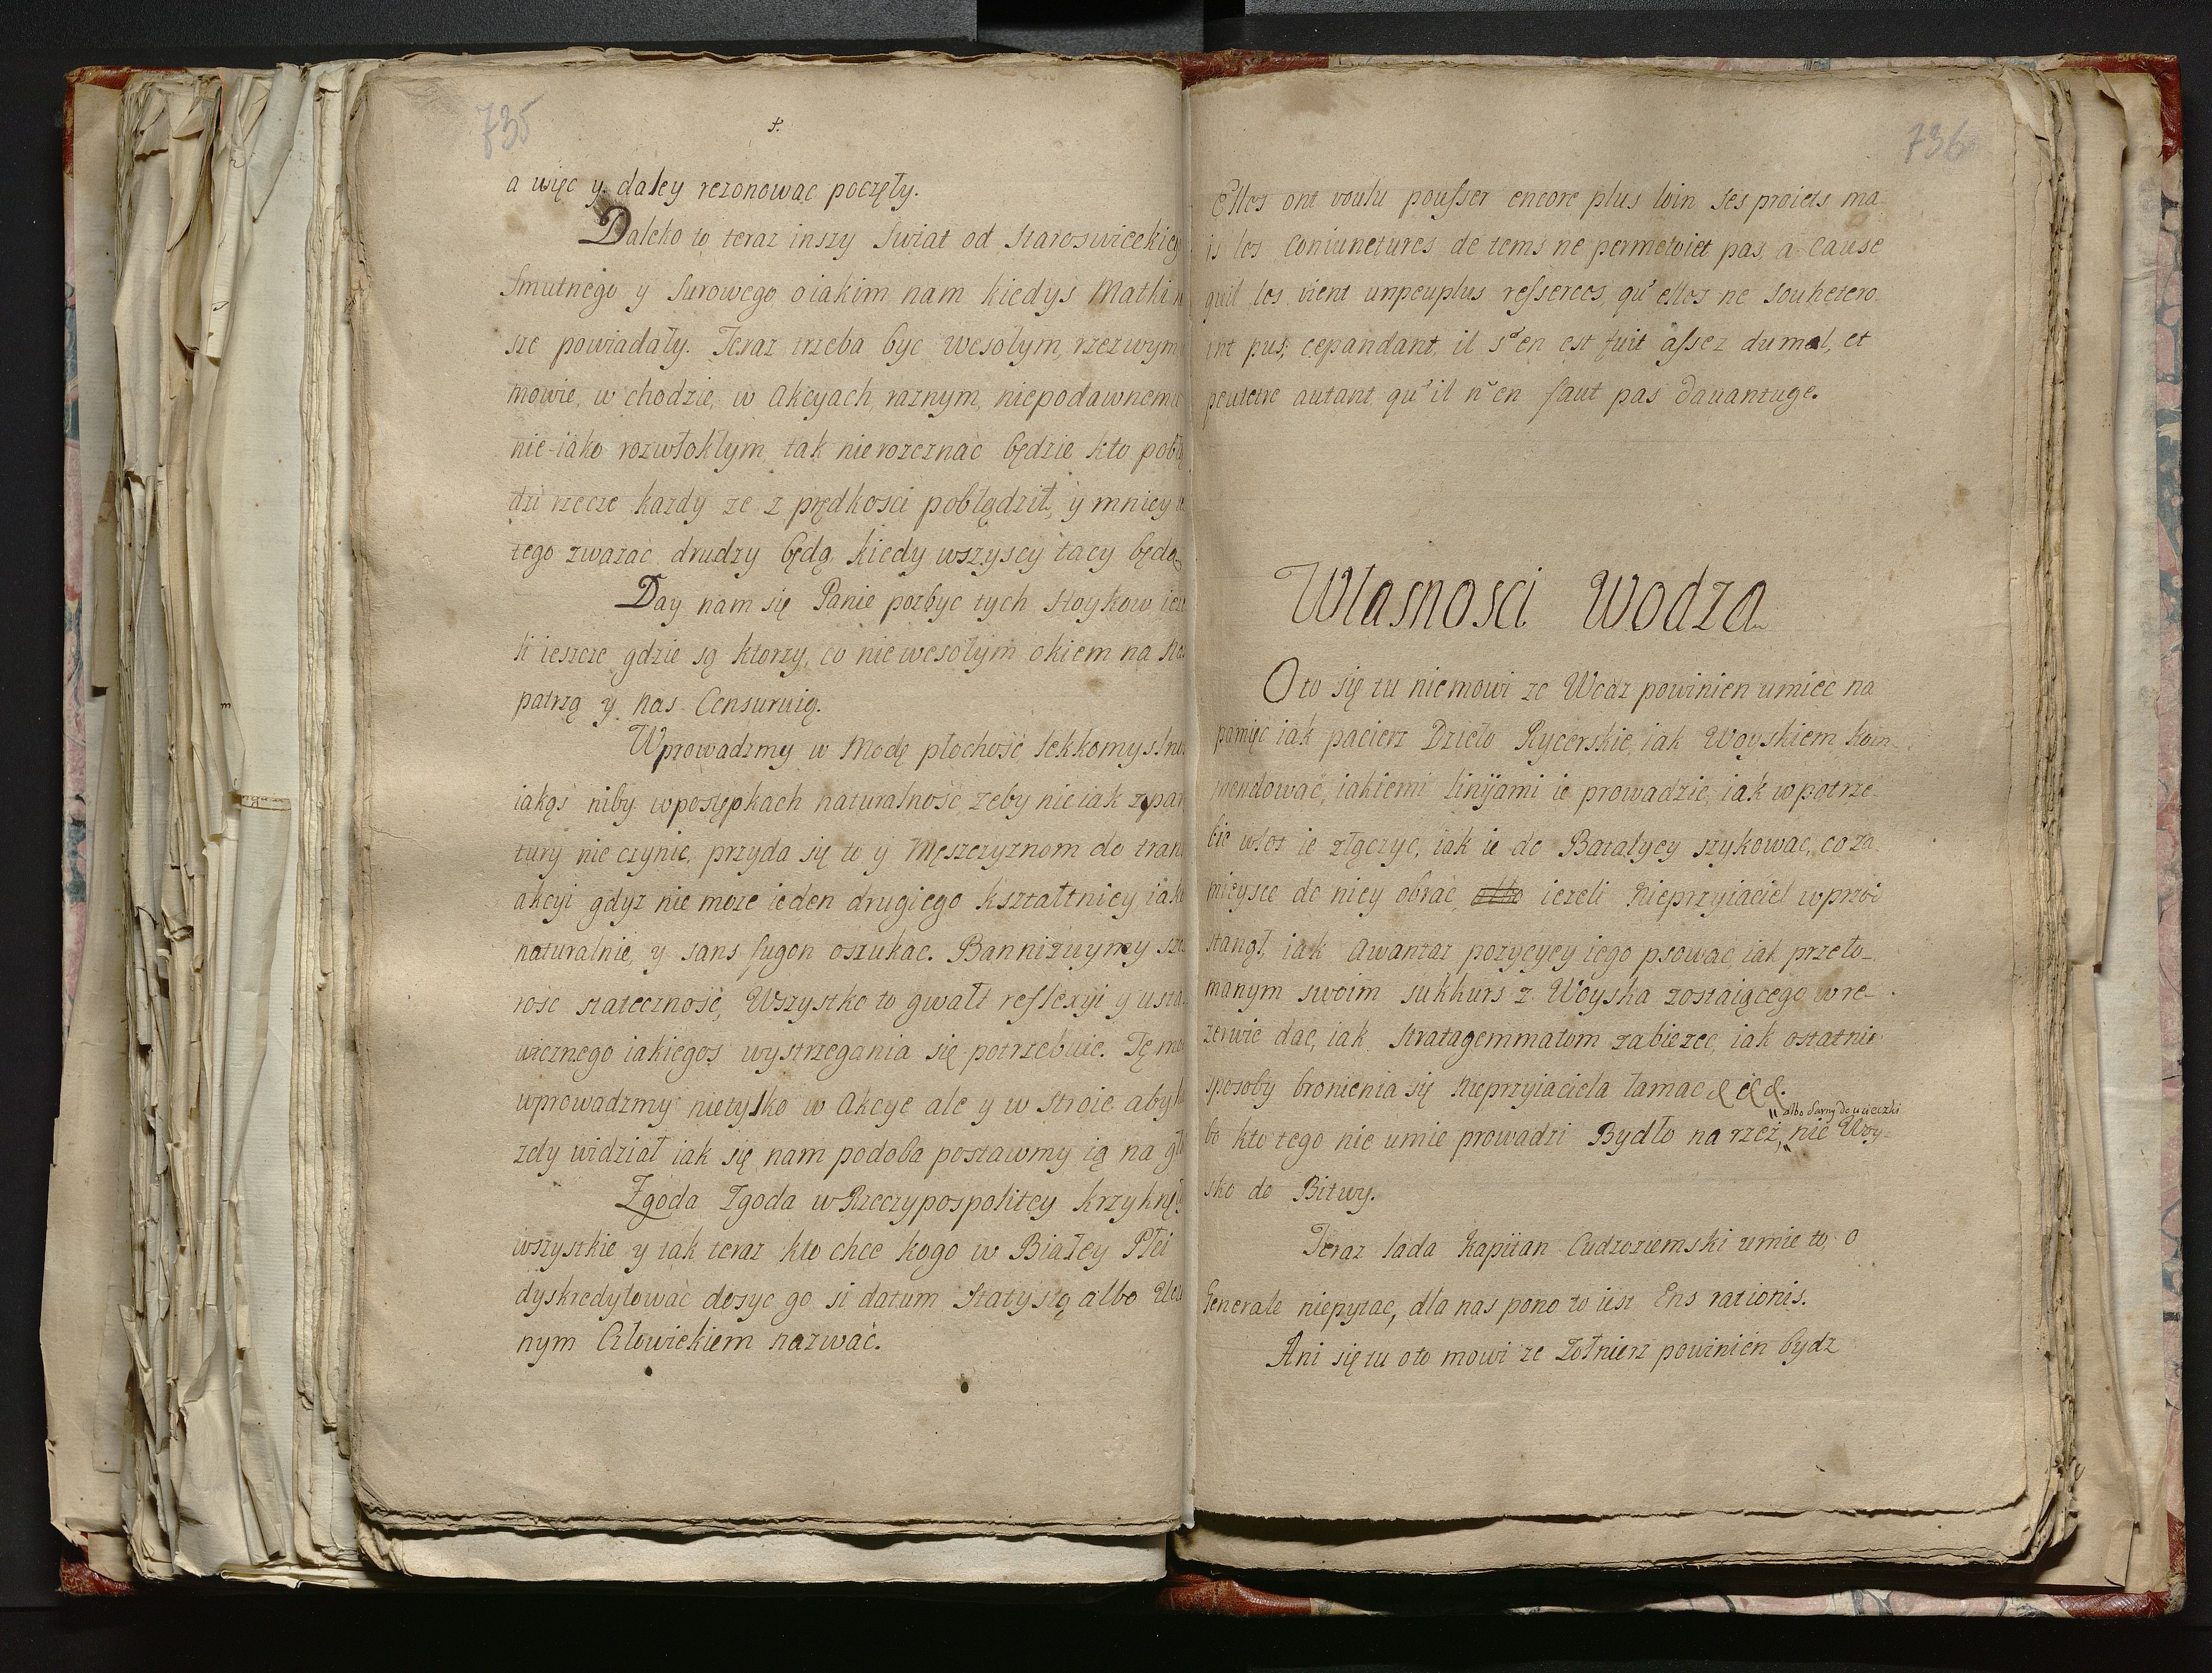 735
a więc y daley rezonować poczęły.
Daleko to teraz inszy Swiat od Staroswieckieg
Smutnego y Surowego, o iakim nam kiedys Matki n
sze powiadały. Teraz trzeba być wesołym, rzezwym
mowie, w chodzie, w Akcyach raznym, niepodawnemu
nie-iako rozwłokłym, tak nierozeznać będzie kto pobłą
dzi rzecze kazdy ze z prędkosci pobłądził, y mniey
tego zwazać drudzy będą, kiedy wszyscy tacy będą
Day nam się Panie pozbyc tych Stoykow, iesz
li ieszcze gdzie są ktorzy, co nie wesołym okiem na
patrzą y nas Censuruią.
Wprowadzmy w Modę płochość lekkomyslno
iakąś niby w postępkach naturalność, zeby nic iak z par
tury nie czynic, przyda się to y Męszczyznom do tran
akcyi gdyz nie moze ieden drugiego kształtniey iako
naturalnie, y sans fugon oszukac. Bannizuymy sze
rość stateczność, Wszystko to gwałt reflexyi y usta
wicznego iakiegos wystrzegania się potrzebuie. Tę mo
wprowadzmy nietylko w Akcye ale y w Stroie aby
zdy widział iak się nam podoba postawmy ią na gł
Zgoda Zgoda w Rzeczypospolitey krzyknęły
wszystkie y tak teraz kto chce kogo w Białey Płci
dyskredytować dosyc go si datum Statystą albo Ucz
nym Człowiekiem nazwać.
736
Elles ont voulu pousser encore plus loin ses proiets ma
is les Coniunctures de tems ne permetoiet pas, a cause
quil les vient unpeuplus resserees, qu'elles ne souhetero
int pus, cepandant, il s'en est fuit assez du mal, et
peutetre autant qu'il n'en faut pas dauantuge.
Własnosci Wodza
O to się tu niemowi ze Wodz powinien umiec na
pamięć iak pacierz Dzieło Rycerskie, iak Woyskiem kom-
mendować, iakiemi linijami ie prowadzic, iak w potrze
bie wlot ie złączyc, iak ie do Batalyey szykowac, co za
mieysce do niey obrac, albo iezeli Nieprzyiaciel wprzod
stanął, iak Awantaz pozycyey iego psować, iak przeło-
manym swoim sukkurs z Woyska zostaiącego w re-
zerwie dac, iak Stratagemmatom zabiezec, iak ostatnie
sposoby bronienia się Nieprzyiaciela łamac & & &.
albo Sarny do ucieczki
bo kto tego nie umie prowadzi Bydło na rzez, nie Woy-
sko do Bitwy.
Teraz lada Kapitan Cudzoziemski umie to, o
Generałe niepytac, dla nas pono to iest Ens rationis.
Ani się tu oto mowi ze Zołnierz powinien bydz